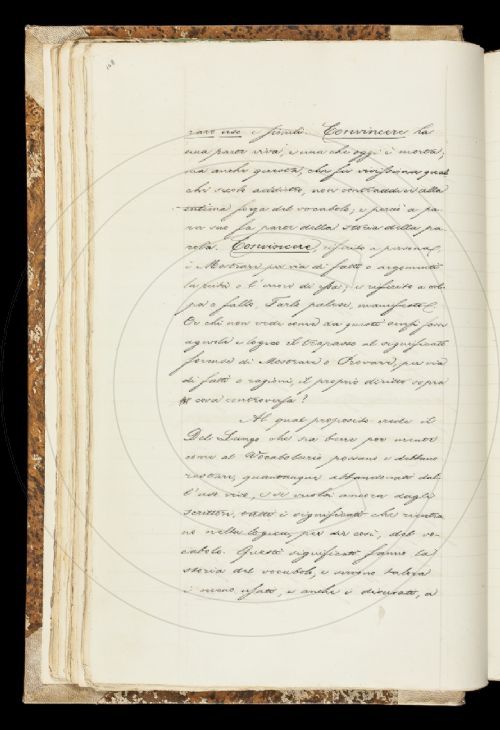 rare use e simili. Convincere ha
una parte viva, e una che oggi è morta;
ma anche questa, che fu vivissima qual
che secolo addietro, non contraddice alla
intima forza del vocabolo, e perciò a pa-
rer suo fa parte della storia della pa-
rola. Convincere, riferito a persona,
è Mostrare per via di fatti o argomenti
la reità o l'errore di essa; e riferito a col-
pa o fallo, Farle palese, manifesto &.
Or chi non vede come da questi sensi sia
agevole e logico il trapasso al significato
forense di Mostrare o Provare, per via
di fatti o ragioni, il proprio diritto sopra
cosa controversa?
Al qual proposito crede il
Del Lungo che sia bene por mente
come al Vocabolario possano e debbano
restare, quantunque abbandonati dal-
l'uso vivo, e se vuolsi ancora dagli
scrittori, tutti i significati che rientra
no nella logica, per dir così, del vo-
cabolo. Questi significati fanno la
storia del vocabolo, e
i meno usati, e anche i disusati, a